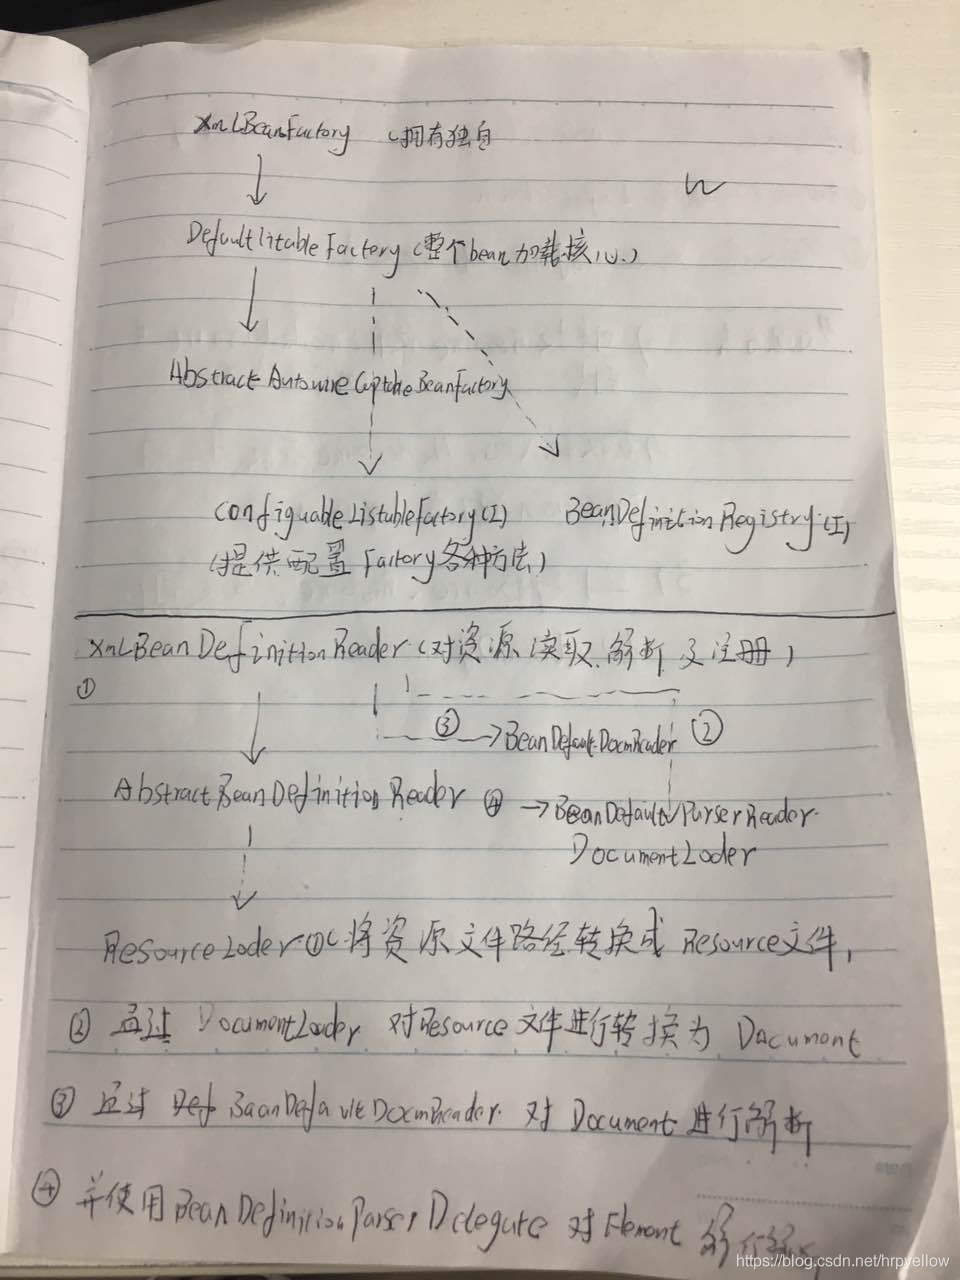 XmLBeanFactory (拥有独自
DefaultlitableFactory (整个bean加载核心)
Abstract Autowire CaptableBeanFactory
ConfiguableListableFactory(I) BeanDefinitionRegistry(I)
(提供配置 Factory各种方法)
XmLBeanDefinitionReader (对资源读取.解析及注册)
①
③ →BeanDefaultDocmReader ②
AbstractBeanDefinitionReader ④ →BeanDefault/ParserReader
DocumentLoder
ResourceLoder ①(将资源文件路径转换成 Resource文件,
② 通过 DocumentLoader 对Resource 文件进行转换为 Document
③ 通过 Def BaanDefaultDocmReader. 对 Document 进行解析
④ 并使用BeanDefinitionParser Delegate 对 Element
https://blog.csdn.net/hrpyellow